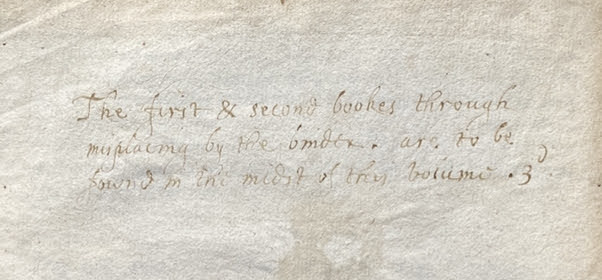 The first & second bookes through
misplacing by the binder. are to be
found in the midst of this volume . 3